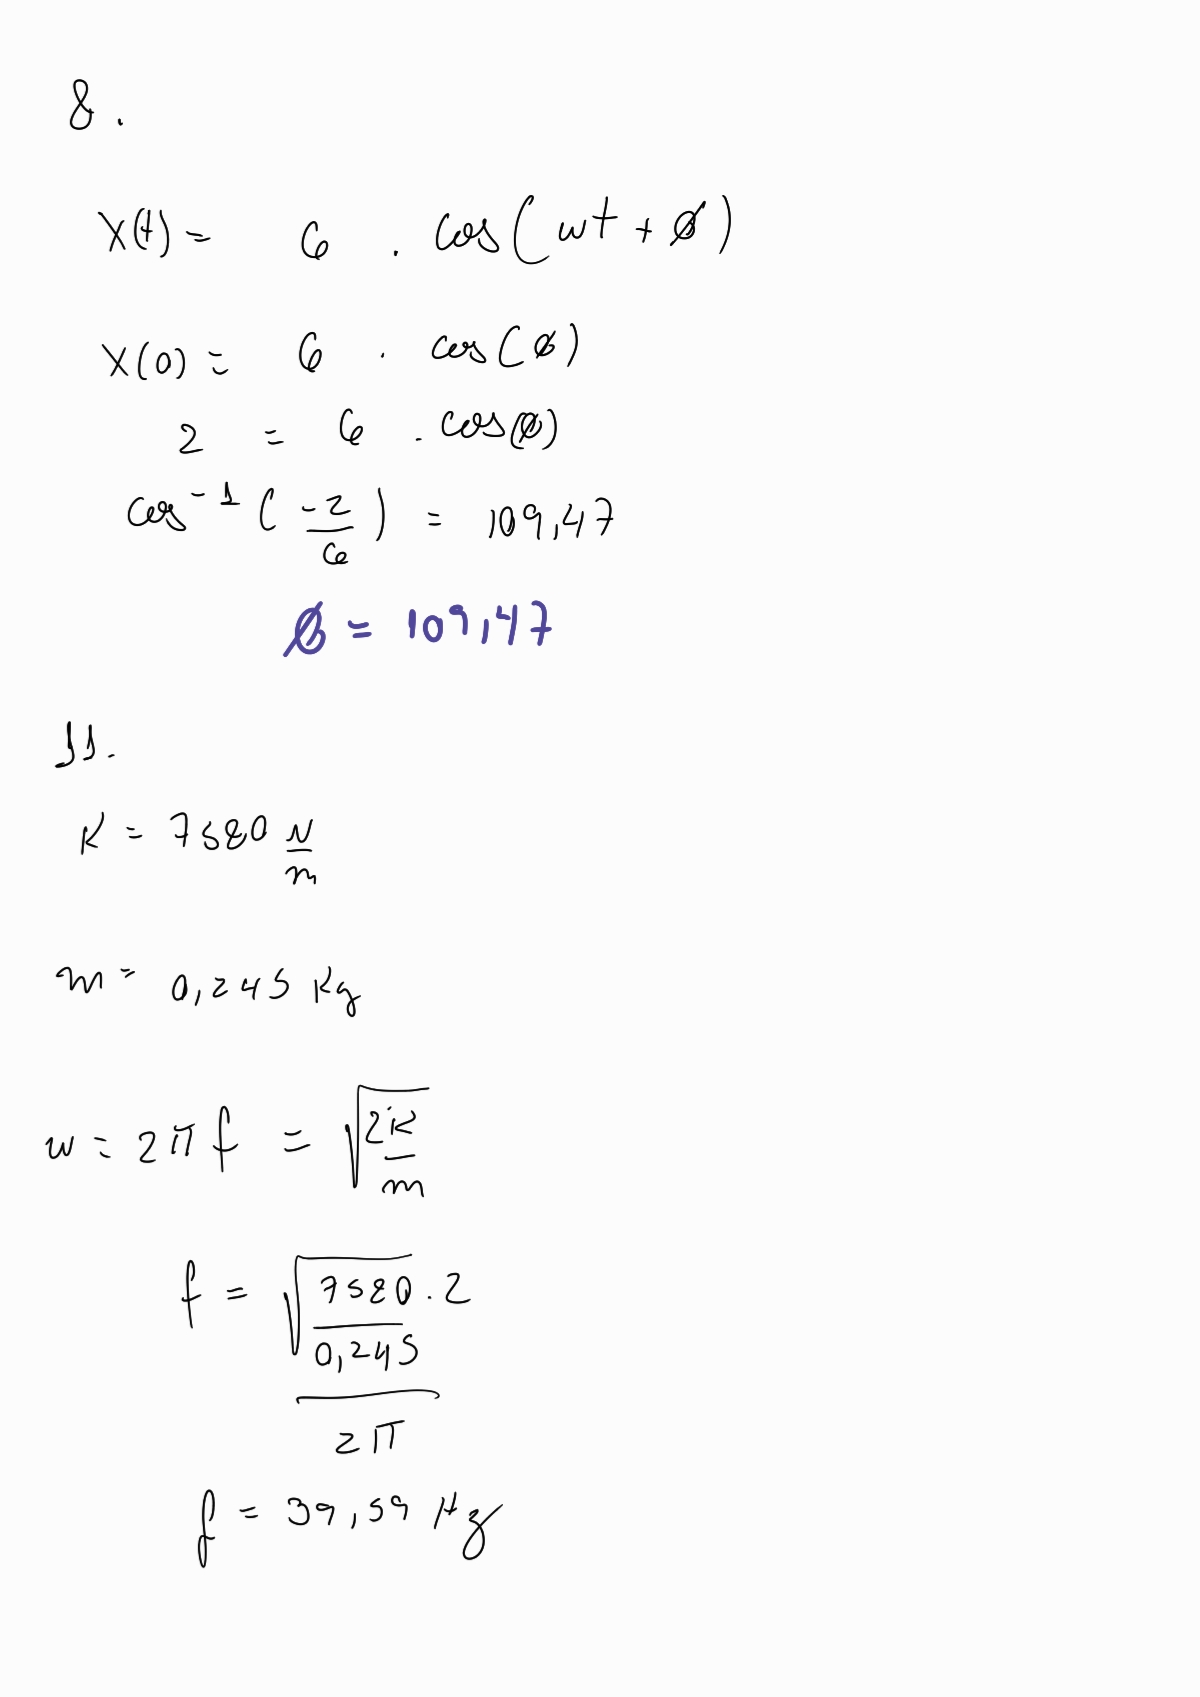 8.
X(t) = 6 . cos(wt + ø)
X(0) = 6 . cos(ø)
2 = 6 . cos(ø)
cos⁻¹(-2/6) = 109,47
ø = 109,47
11.
K = 7580 N/m
m = 0,245 Kg
w = 2πf = √(2K/m)
f = √(7580/0,245 . 2)/2π
f = 39,59 Hz